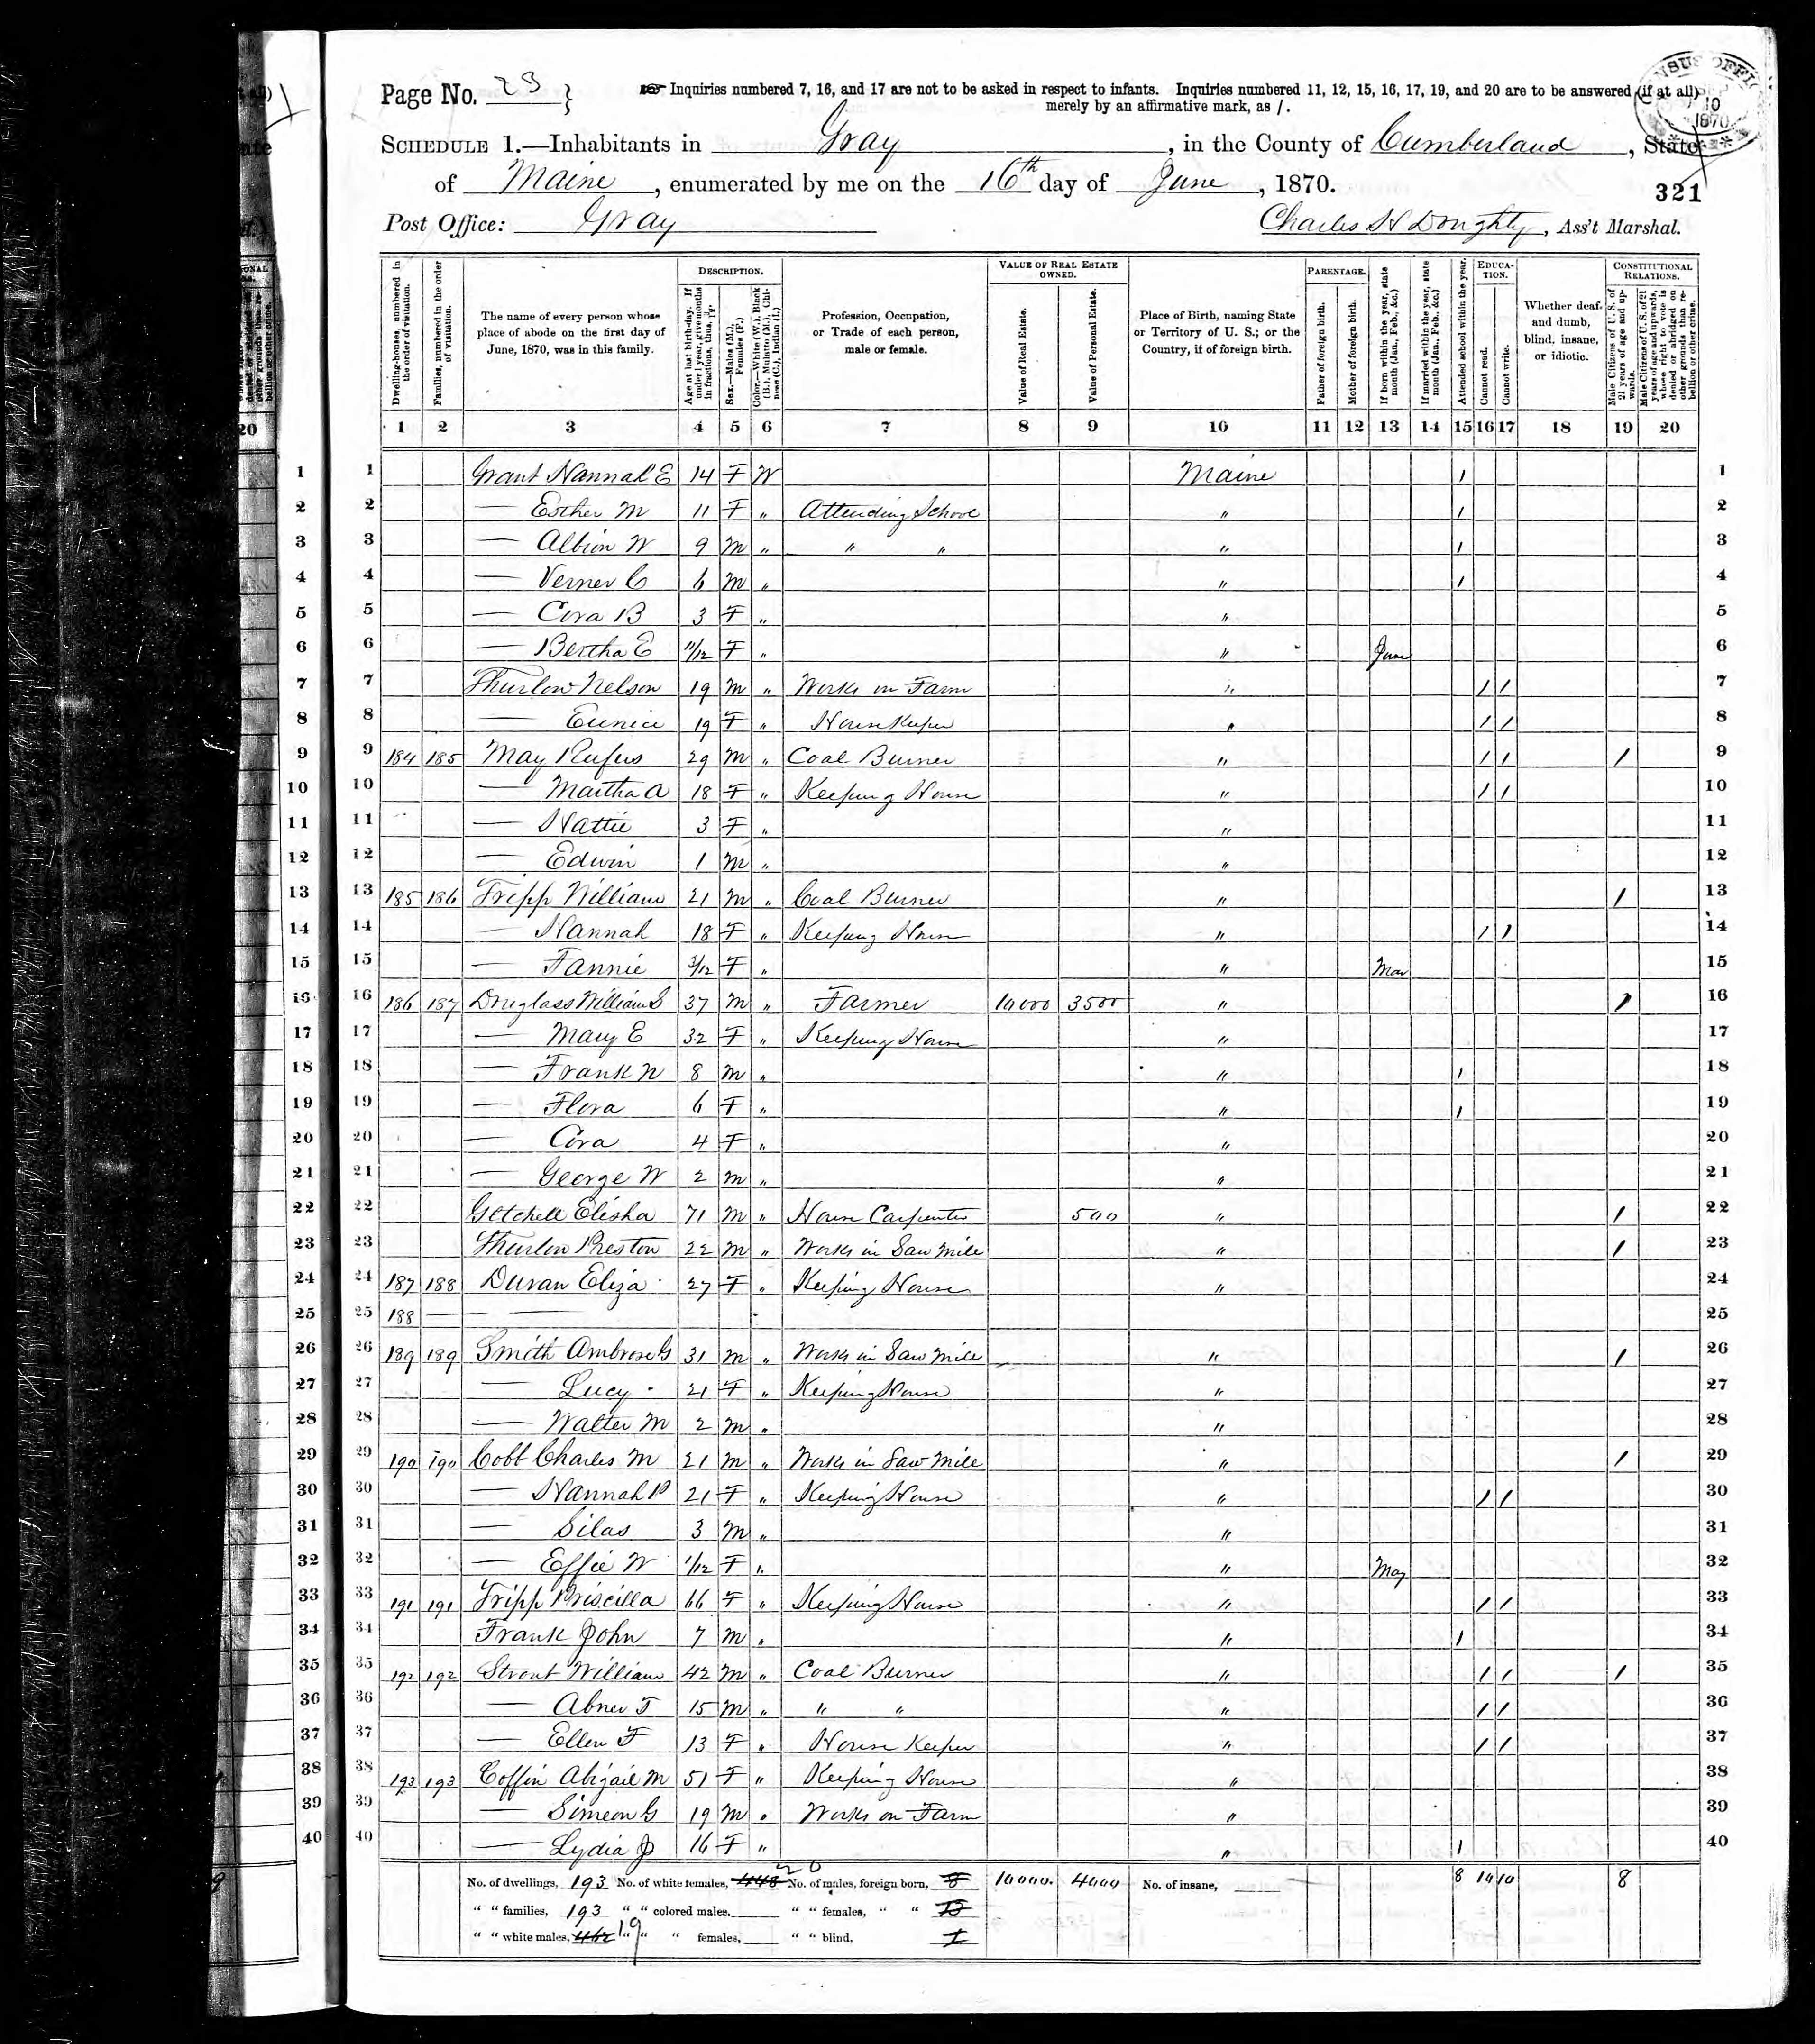 Page No. 23 } Inquiries numbered 7, 16, and 17 are not to be asked in respect to infants. Inquiries numbered 11, 12, 15, 16, 17, 19, and 20 are to be answered (if at all)
merely by an affirmative mark, as /.
SCHEDULE 1.—Inhabitants in Gray, in the County of Cumberland, State
of Maine, enumerated by me on the 16th day of June, 1870.
321
Post Office: Gray Charles H Doughty, Ass't Marshal.
Dwelling-houses, numbered in the order of visitation.
Families, numbered in the order of visitation.
The name of every person whose place of abode on the first day of June, 1870, was in this family.
DESCRIPTION.
Age at last birth-day. If under 1 year, give months in fractions, thus, 3/12.
Sex.—Males (M.), Females (F.)
Color.—White (W.), Black (B.), Mulatto (M.), Chinese (C.), Indian (I.)
Profession, Occupation, or Trade of each person, male or female.
VALUE OF REAL ESTATE OWNED.
Value of Real Estate.
Value of Personal Estate.
Place of Birth, naming State or Territory of U. S.; or the Country, if of foreign birth.
PARENTAGE.
Father of foreign birth.
Mother of foreign birth.
If born within the year, state month (Jan., Feb., &c.)
If married within the year, state month (Jan., Feb., &c.)
EDUCATION.
Attended school within the year.
Cannot read.
Cannot write.
Whether deaf and dumb, blind, insane, or idiotic.
CONSTITUTIONAL RELATIONS.
Male Citizens of U. S. of 21 years of age and upwards.
Male Citizens of U. S. of 21 years of age and upwards, whose right to vote is denied or abridged on other grounds than rebellion or other crime.
1 2 3 4 5 6 7 8 9 10 11 12 13 14 15 16 17 18 19 20
1 Grant Hannah E 14 F W Maine / 1
2 — Esther M 11 F " Attending School " / 2
3 — Albion W 9 M " " " " / 3
4 — Verner C 6 M " " / 4
5 — Cora B 3 F " " 5
6 — Bertha E 11/12 F " " June 6
7 Thurlow Nelson 19 M " Works on Farm " / / 7
8 — Eunice 19 F " House Keeper " / / 8
9 184 185 May Rufus 29 M " Coal Burner " / / / 9
10 — Martha A 18 F " Keeping House " / / 10
11 — Hattie 3 F " " 11
12 — Edwin 1 M " " 12
13 185 186 Tripp William 21 M " Coal Burner " / 13
14 — Hannah 18 F " Keeping House " / / 14
15 — Fannie 3/12 F " " Mar 15
16 186 187 Douglass William S 37 M " Farmer 10000 3500 " / 16
17 — Mary E 32 F " Keeping House " 17
18 — Frank W 8 M " " / 18
19 — Flora 6 F " " / 19
20 — Cora 4 F " " 20
21 — George W 2 M " " 21
22 Getchell Elisha 71 M " House Carpenter 500 " / 22
23 Thurlow Preston 22 M " Works in Saw Mill " / 23
24 187 188 Duran Eliza 27 F " Keeping House " 24
25 188 — — 25
26 189 189 Smith Ambrose G 31 M " Works in Saw Mill " / 26
27 — Lucy 21 F " Keeping House " 27
28 — Walter M 2 M " " 28
29 190 190 Cobb Charles M 21 M " Works in Saw Mill " / 29
30 — Hannah P 21 F " Keeping House " / / 30
31 — Silas 3 M " " 31
32 — Effie W 1/12 F " " May 32
33 191 191 Tripp Priscilla 66 F " Keeping House " / / 33
34 Frank John 7 M " " / 34
35 192 192 Strout William 42 M " Coal Burner " / / / 35
36 — Abner T 15 M " " " " / / 36
37 — Ellen F 13 F " House Keeper " / / 37
38 193 193 Coffin Abigail M 51 F " Keeping House " 38
39 — Simeon G 19 M " Works on Farm " 39
40 — Lydia J 16 F " " / 40
No. of dwellings, 193 No. of white females, 448 20 No. of males, foreign born, 8 10000. 4000 No. of insane, 8 10 10 8
" " families, 193 " " colored males, " " females, " "
" " white males, 19 " " females, " " blind, 1